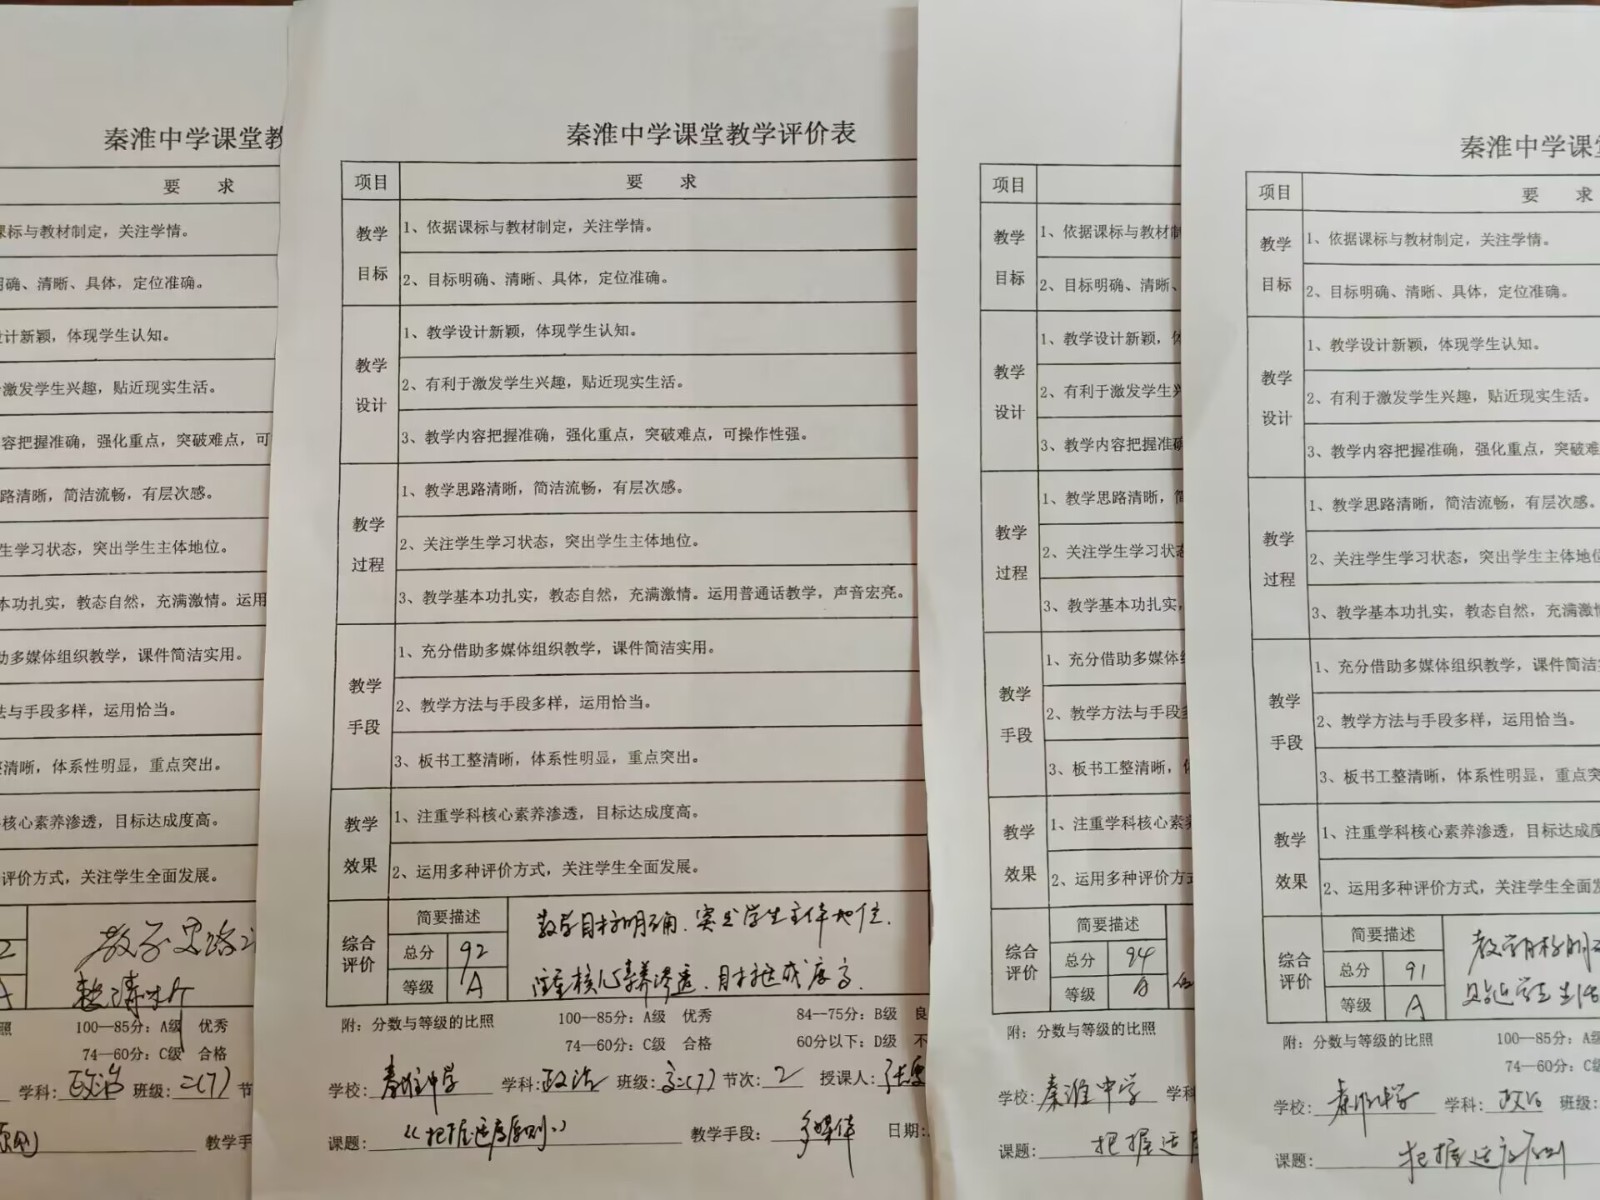 秦淮中学课堂教
要 求
课标与教材制定，关注学情。
明确、清晰、具体，定位准确。
设计新颖，体现学生认知。
激发学生兴趣，贴近现实生活。
容把握准确，强化重点，突破难点，可
路清晰，简洁流畅，有层次感。
生学习状态，突出学生主体地位。
本功扎实，教态自然，充满激情。运用
助多媒体组织教学，课件简洁实用。
法与手段多样，运用恰当。
清晰，体系性明显，重点突出。
核心素养渗透，目标达成度高。
评价方式，关注学生全面发展。
2
A
教学思路
照 100—85分：A级 优秀
74—60分：C级 合格
学科：政治 班级：二（7） 节
原则 教学手
秦淮中学课堂教学评价表
项目 要 求
教学目标
1、依据课标与教材制定，关注学情。
2、目标明确、清晰、具体，定位准确。
教学设计
1、教学设计新颖，体现学生认知。
2、有利于激发学生兴趣，贴近现实生活。
3、教学内容把握准确，强化重点，突破难点，可操作性强。
教学过程
1、教学思路清晰，简洁流畅，有层次感。
2、关注学生学习状态，突出学生主体地位。
3、教学基本功扎实，教态自然，充满激情。运用普通话教学，声音宏亮。
教学手段
1、充分借助多媒体组织教学，课件简洁实用。
2、教学方法与手段多样，运用恰当。
3、板书工整清晰，体系性明显，重点突出。
教学效果
1、注重学科核心素养渗透，目标达成度高。
2、运用多种评价方式，关注学生全面发展。
综合评价
简要描述
总分 92
等级 A
教学目标明确、突出学生主体地位.
注重核心素养渗透、目标达成度高.
附：分数与等级的比照 100—85分：A级 优秀 84—75分：B级 良
74—60分：C级 合格 60分以下：D级 不
学校：秦淮中学 学科：政治 班级：高二（7） 节次：2 授课人：张
课题：《把握适度原则》 教学手段：多媒体 日期：
项目
教学目标
1、依据课标与教材制
2、目标明确、清晰、
教学设计
1、教学设计新颖，体
2、有利于激发学生兴
3、教学内容把握准确
教学过程
1、教学思路清晰，简
2、关注学生学习状态
3、教学基本功扎实，
教学手段
1、充分借助多媒体组
2、教学方法与手段多
3、板书工整清晰，体
教学效果
1、注重学科核心素养
2、运用多种评价方式
综合评价
简要描述
总分 94
等级 A
附：分数与等级的比照
学校：秦淮中学 学科
课题： 把握适度
秦淮中学课堂
项目 要 求
教学目标
1、依据课标与教材制定，关注学情。
2、目标明确、清晰、具体，定位准确。
教学设计
1、教学设计新颖，体现学生认知。
2、有利于激发学生兴趣，贴近现实生活。
3、教学内容把握准确，强化重点，突破难
教学过程
1、教学思路清晰，简洁流畅，有层次感。
2、关注学生学习状态，突出学生主体地位
3、教学基本功扎实，教态自然，充满激情
教学手段
1、充分借助多媒体组织教学，课件简洁实
2、教学方法与手段多样，运用恰当。
3、板书工整清晰，体系性明显，重点突
教学效果
1、注重学科核心素养渗透，目标达成度
2、运用多种评价方式，关注学生全面发
综合评价
简要描述
总分 91
等级 A
教学目标明确
贴近学生生活
附：分数与等级的比照 100—85分：A级
74—60分：C级
学校：秦淮中学 学科：政治 班级：
课题： 把握适度原则